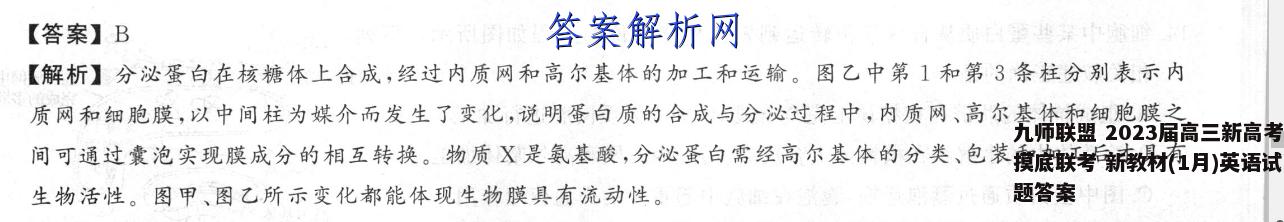 答案解析网
【答案】B
【解析】分泌蛋白在核糖体上合成,经过内质网和高尔基体的加工和运输。图乙中第1和第3条柱分别表示内
质网和细胞膜,以中间柱为媒介而发生了变化,说明蛋白质的合成与分泌过程中,内质网、高尔基体和细胞膜之
间可通过囊泡实现膜成分的相互转换。物质X是氨基酸,分泌蛋白需经高尔基体的分类、包装
生物活性。图甲、图乙所示变化都能体现生物膜具有流动性。
九师联盟 2023届高三新高考
摸底联考 新教材(1月)英语试
题答案